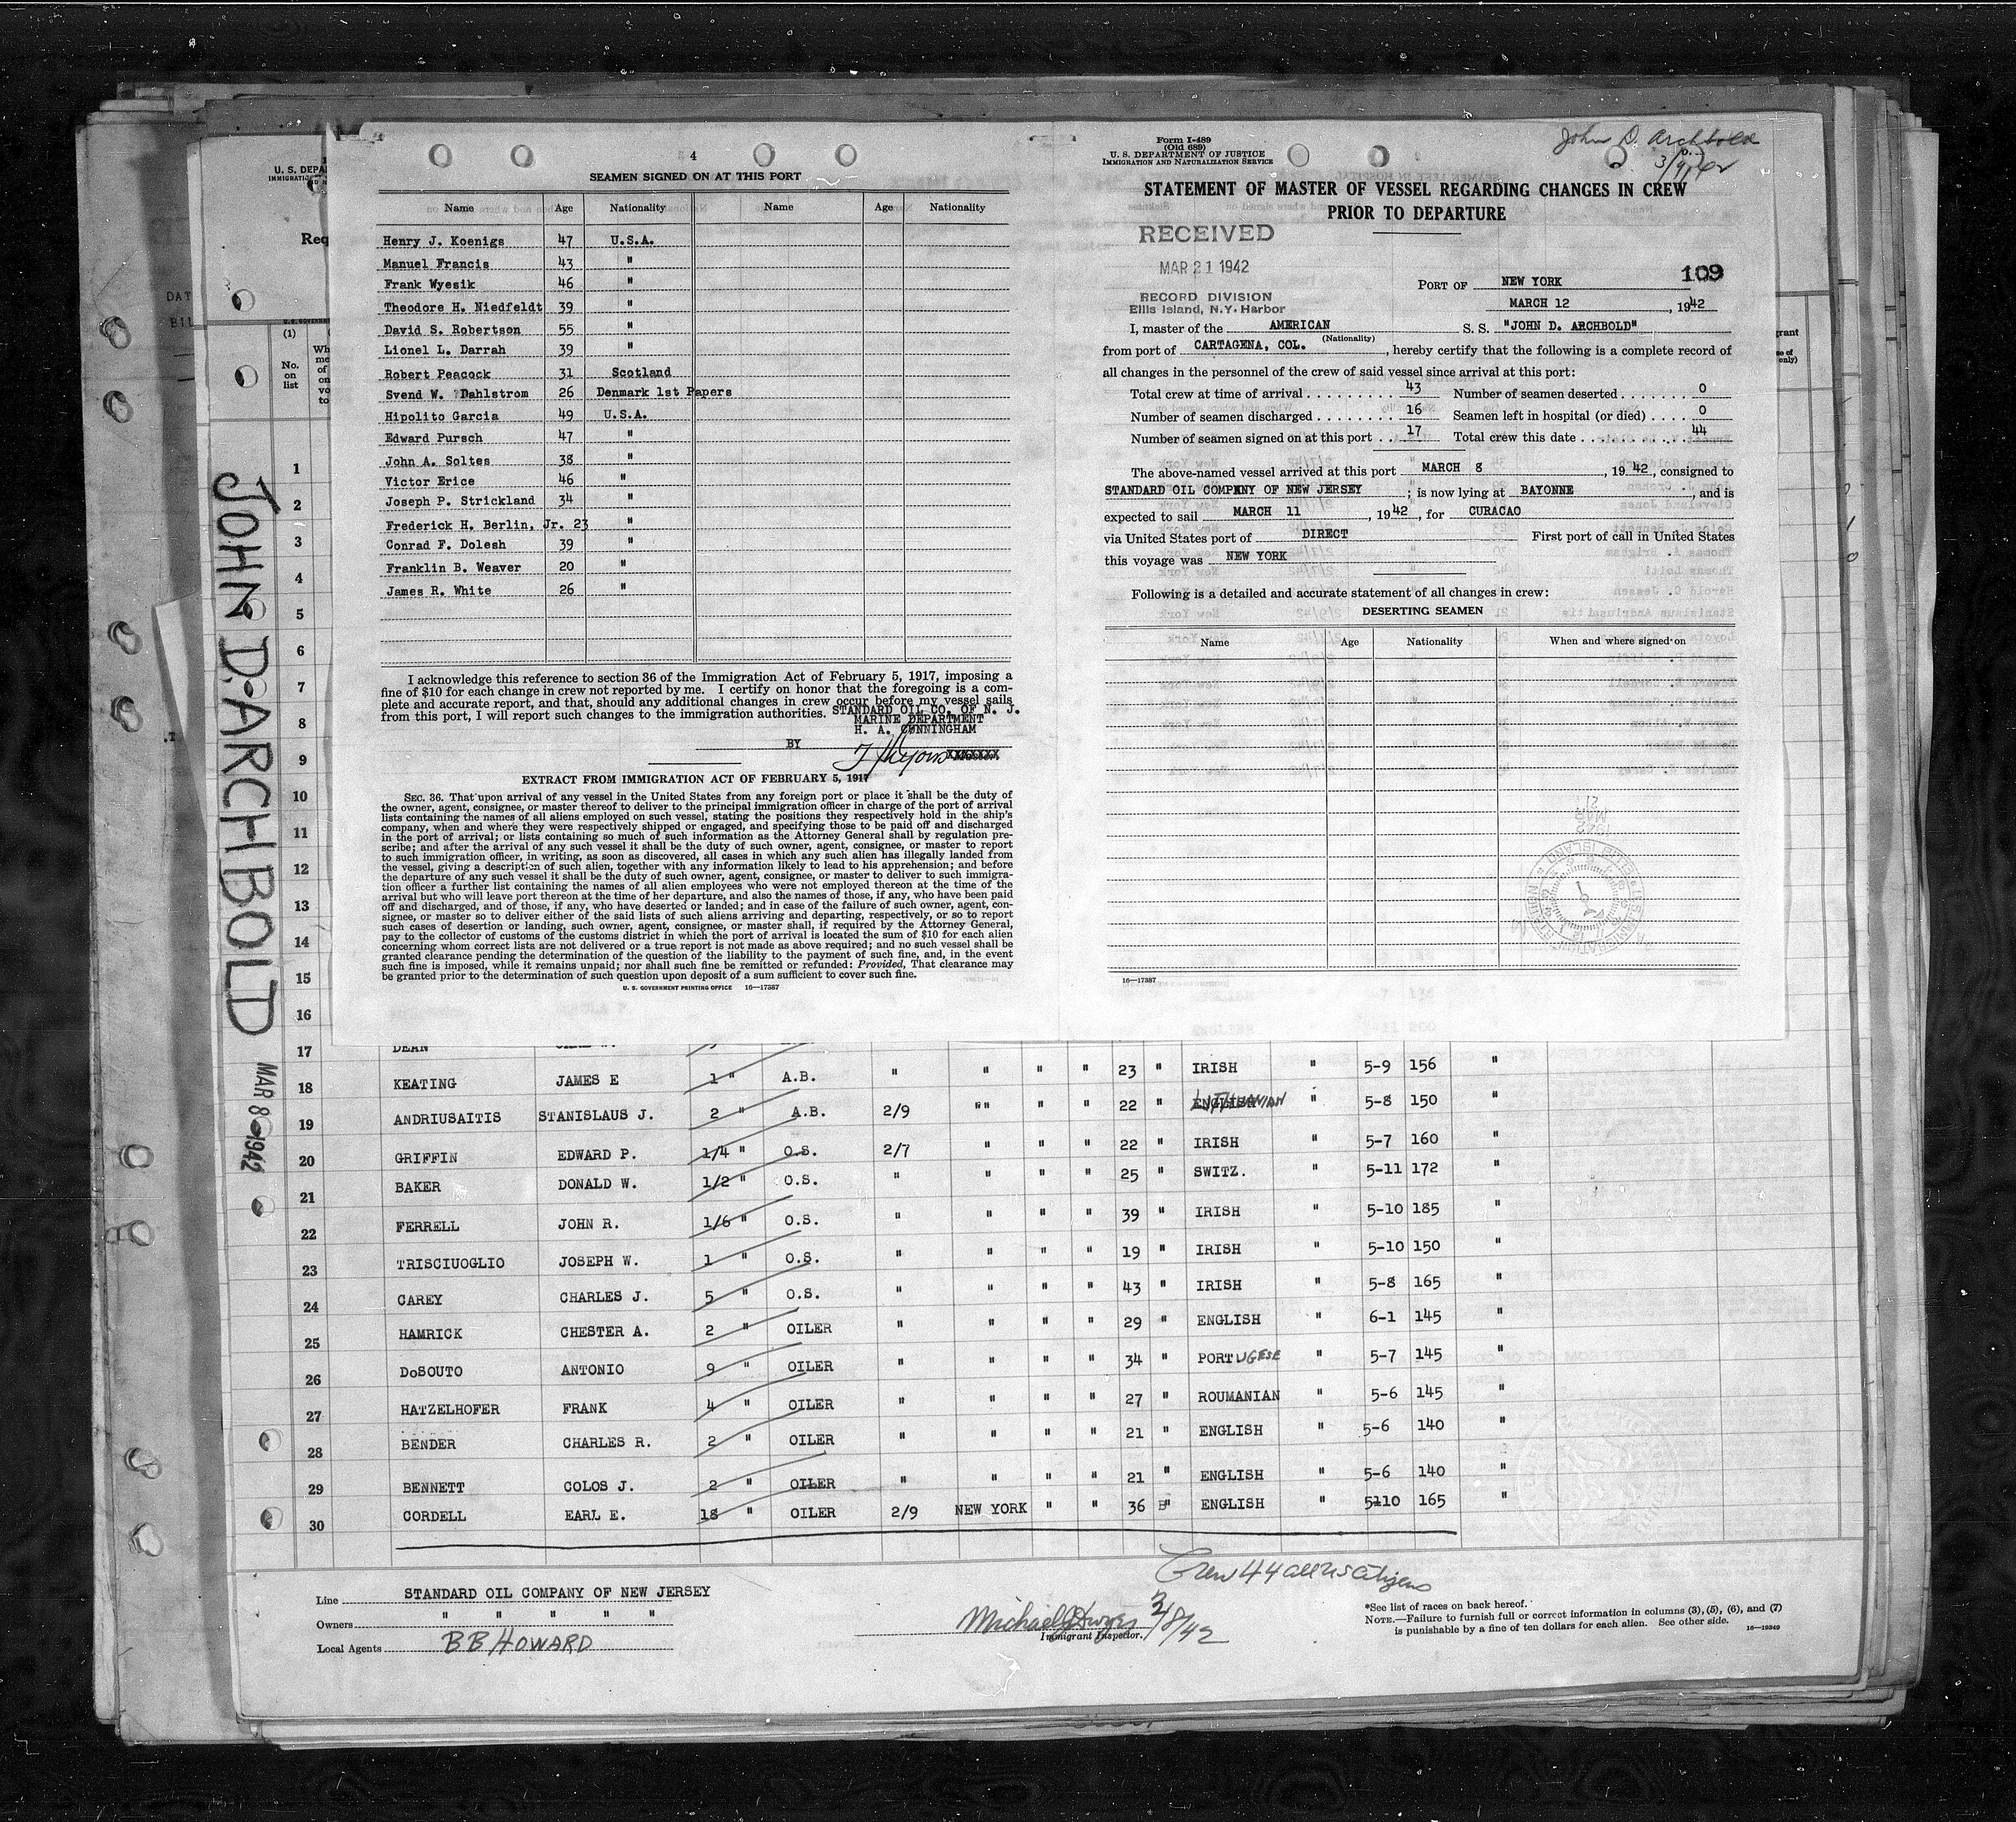 4
SEAMEN SIGNED ON AT THIS PORT
Name Age Nationality Name Age Nationality
Henry J. Koenigs 47 U.S.A.
Manuel Francis 43 "
Frank Wyesik 46 "
Theodore H. Niedfeldt 39 "
David S. Robertson 55 "
Lionel L. Darrah 39 "
Robert Peacock 31 Scotland
Svend W. Dahlstrom 26 Denmark 1st Papers
Hipolito Garcia 49 U.S.A.
Edward Pursch 47 "
John A. Soltes 38 "
Victor Erice 46 "
Joseph P. Strickland 34 "
Frederick H. Berlin, Jr. 23 "
Conrad F. Dolesh 39 "
Franklin B. Weaver 20 "
James R. White 26 "
I acknowledge this reference to section 36 of the Immigration Act of February 5, 1917, imposing a
fine of $10 for each change in crew not reported by me. I certify on honor that the foregoing is a com-
plete and accurate report, and that, should any additional changes in crew occur before my vessel sails
from this port, I will report such changes to the immigration authorities. STANDARD OIL CO. OF N. J.
MARINE DEPARTMENT
H. A. CUNNINGHAM
BY
EXTRACT FROM IMMIGRATION ACT OF FEBRUARY 5, 1917
SEC. 36. That upon arrival of any vessel in the United States from any foreign port or place it shall be the duty of
the owner, agent, consignee, or master thereof to deliver to the principal immigration officer in charge of the port of arrival
lists containing the names of all aliens employed on such vessel, stating the positions they respectively hold in the ship's
company, when and where they were respectively shipped or engaged, and specifying those to be paid off and discharged
in the port of arrival; or lists containing so much of such information as the Attorney General shall by regulation pre-
scribe; and after the arrival of any such vessel it shall be the duty of such owner, agent, consignee, or master to report
to such immigration officer, in writing, as soon as discovered, all cases in which any such alien has illegally landed from
the vessel, giving a description of such alien, together with any information likely to lead to his apprehension; and before
the departure of any such vessel it shall be the duty of such owner, agent, consignee, or master to deliver to such immigra-
tion officer a further list containing the names of all alien employees who were not employed thereon at the time of the
arrival but who will leave port thereon at the time of her departure, and also the names of those, if any, who have been paid
off and discharged, and of those, if any, who have deserted or landed; and in case of the failure of such owner, agent, con-
signee, or master so to deliver either of the said lists of such aliens arriving and departing, respectively, or so to report
such cases of desertion or landing, such owner, agent, consignee, or master shall, if required by the Attorney General,
pay to the collector of customs of the customs district in which the port of arrival is located the sum of $10 for each alien
concerning whom correct lists are not delivered or a true report is not made as above required; and no such vessel shall be
granted clearance pending the determination of the question of the liability to the payment of such fine, and, in the event
such fine is imposed, while it remains unpaid; nor shall such fine be remitted or refunded: Provided, That clearance may
be granted prior to the determination of such question upon deposit of a sum sufficient to cover such fine.
U. S. GOVERNMENT PRINTING OFFICE 16—17387
Form I-489
(Old 689)
U. S. DEPARTMENT OF JUSTICE
IMMIGRATION AND NATURALIZATION SERVICE
John D. Archbold
3/9/42
STATEMENT OF MASTER OF VESSEL REGARDING CHANGES IN CREW
PRIOR TO DEPARTURE
RECEIVED
MAR 21 1942
RECORD DIVISION
Ellis Island, N.Y. Harbor
109
PORT OF NEW YORK
MARCH 12, 1942
I, master of the AMERICAN S. S. "JOHN D. ARCHBOLD"
(Nationality)
from port of CARTAGENA, COL., hereby certify that the following is a complete record of
all changes in the personnel of the crew of said vessel since arrival at this port:
Total crew at time of arrival 43 Number of seamen deserted 0
Number of seamen discharged 16 Seamen left in hospital (or died) 0
Number of seamen signed on at this port 17 Total crew this date 44
The above-named vessel arrived at this port MARCH 8, 1942, consigned to
STANDARD OIL COMPANY OF NEW JERSEY; is now lying at BAYONNE, and is
expected to sail MARCH 11, 1942, for CURACAO
via United States port of DIRECT First port of call in United States
this voyage was NEW YORK
Following is a detailed and accurate statement of all changes in crew:
DESERTING SEAMEN
Name Age Nationality When and where signed on
16—17387
U. S. DEPA
IMMIGRATIO
Req
(1)
No.
on
list
JOHN D. ARCHBOLD
MAR 8 1942
1
2
3
4
5
6
7
8
9
10
11
12
13
14
15
16
17 DEAN
18 KEATING JAMES E 1 " A.B. " " " " 23 " IRISH " 5-9 156 "
19 ANDRIUSAITIS STANISLAUS J. 2 " A.B. 2/9 "" " " 22 " LITHUANIAN " 5-8 150 "
20 GRIFFIN EDWARD P. 1/4 " O.S. 2/7 " " " 22 " IRISH " 5-7 160 "
21 BAKER DONALD W. 1/2 " O.S. " " " " 25 " SWITZ. " 5-11 172 "
22 FERRELL JOHN R. 1/6 " O.S. " " " " 39 " IRISH " 5-10 185 "
23 TRISCIUOGLIO JOSEPH W. 1 " O.S. " " " " 19 " IRISH " 5-10 150 "
24 CAREY CHARLES J. 5 " O.S. " " " " 43 " IRISH " 5-8 165 "
25 HAMRICK CHESTER A. 2 " OILER " " " " 29 " ENGLISH " 6-1 145 "
26 DoSOUTO ANTONIO 9 " OILER " " " " 34 " PORTUGESE " 5-7 145 "
27 HATZELHOFER FRANK 4 " OILER " " " " 27 " ROUMANIAN " 5-6 145 "
28 BENDER CHARLES R. 2 " OILER " " " " 21 " ENGLISH " 5-6 140 "
29 BENNETT COLOS J. 2 " OILER " " " " 21 " ENGLISH " 5-6 140 "
30 CORDELL EARL E. 18 " OILER 2/9 NEW YORK " " 36 " ENGLISH " 5110 165 "
Crew 44 all US Citizens
Line STANDARD OIL COMPANY OF NEW JERSEY
Owners " " " " "
Local Agents B B HOWARD
Michael 3/8/42
Immigrant Inspector.
*See list of races on back hereof.
NOTE.—Failure to furnish full or correct information in columns (3), (5), (6), and (7)
is punishable by a fine of ten dollars for each alien. See other side.
16—19349